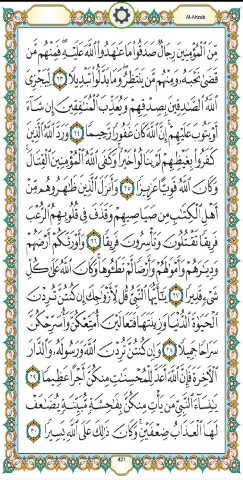 Al-Ahzab
مِّنَ ٱلْمُؤْمِنِينَ رِجَالٌ صَدَقُوا۟ مَا عَٰهَدُوا۟ ٱللَّهَ عَلَيْهِ ۖ فَمِنْهُم مَّن
قَضَىٰ نَحْبَهُۥ وَمِنْهُم مَّن يَنتَظِرُ ۖ وَمَا بَدَّلُوا۟ تَبْدِيلًا ٢٣ لِّيَجْزِىَ
ٱللَّهُ ٱلصَّٰدِقِينَ بِصِدْقِهِمْ وَيُعَذِّبَ ٱلْمُنَٰفِقِينَ إِن شَآءَ
أَوْ يَتُوبَ عَلَيْهِمْ ۚ إِنَّ ٱللَّهَ كَانَ غَفُورًا رَّحِيمًا ٢٤ وَرَدَّ ٱللَّهُ ٱلَّذِينَ
كَفَرُوا۟ بِغَيْظِهِمْ لَمْ يَنَالُوا۟ خَيْرًا ۚ وَكَفَى ٱللَّهُ ٱلْمُؤْمِنِينَ ٱلْقِتَالَ ۚ
وَكَانَ ٱللَّهُ قَوِيًّا عَزِيزًا ٢٥ وَأَنزَلَ ٱلَّذِينَ ظَٰهَرُوهُم مِّنْ
أَهْلِ ٱلْكِتَٰبِ مِن صَيَاصِيهِمْ وَقَذَفَ فِى قُلُوبِهِمُ ٱلرُّعْبَ
فَرِيقًا تَقْتُلُونَ وَتَأْسِرُونَ فَرِيقًا ٢٦ وَأَوْرَثَكُمْ أَرْضَهُمْ
وَدِيَٰرَهُمْ وَأَمْوَٰلَهُمْ وَأَرْضًا لَّمْ تَطَـُٔوهَا ۚ وَكَانَ ٱللَّهُ عَلَىٰ كُلِّ
شَىْءٍ قَدِيرًا ٢٧ يَٰٓأَيُّهَا ٱلنَّبِىُّ قُل لِّأَزْوَٰجِكَ إِن كُنتُنَّ تُرِدْنَ
ٱلْحَيَوٰةَ ٱلدُّنْيَا وَزِينَتَهَا فَتَعَالَيْنَ أُمَتِّعْكُنَّ وَأُسَرِّحْكُنَّ
سَرَاحًا جَمِيلًا ٢٨ وَإِن كُنتُنَّ تُرِدْنَ ٱللَّهَ وَرَسُولَهُۥ وَٱلدَّارَ
ٱلْءَاخِرَةَ فَإِنَّ ٱللَّهَ أَعَدَّ لِلْمُحْسِنَٰتِ مِنكُنَّ أَجْرًا عَظِيمًا ٢٩
يَٰنِسَآءَ ٱلنَّبِىِّ مَن يَأْتِ مِنكُنَّ بِفَٰحِشَةٍ مُّبَيِّنَةٍ يُضَٰعَفْ
لَهَا ٱلْعَذَابُ ضِعْفَيْنِ ۚ وَكَانَ ذَٰلِكَ عَلَى ٱللَّهِ يَسِيرًا ٣٠
421